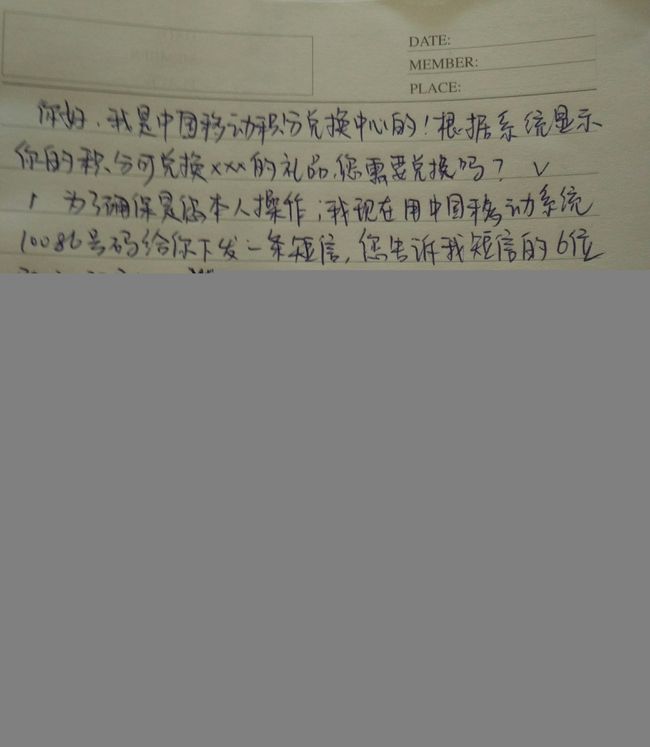 DATE:
MEMBER:
PLACE:
你好、我是中国移动积分兑换中心的！根据系统显示
你的积分可兑换xxx的礼品.您需要兑换吗？ √
1 为了确保是您本人操作；我现在用中国移动系统
10086号码给你下发一条短信，您告诉我短信的6位